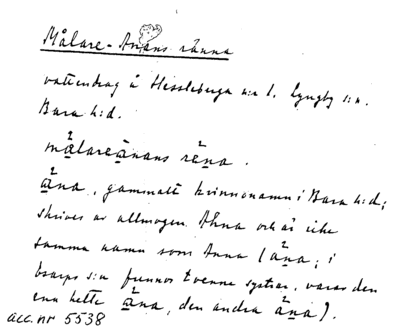 Målare-Anans ränna
vattendrag å Hessleberga n:r 1. Lyngby s:n.
Bara h:d.
målareānans réna.
āna, gammalt kvinnonamn i Bara h:d;
skrives av allmogen Ahna och är icke
samma namn som Anna (ána; i
s:n funnos tvenne systrar, varav den
ena hette āna, den andra ána).
acc. nr 5538